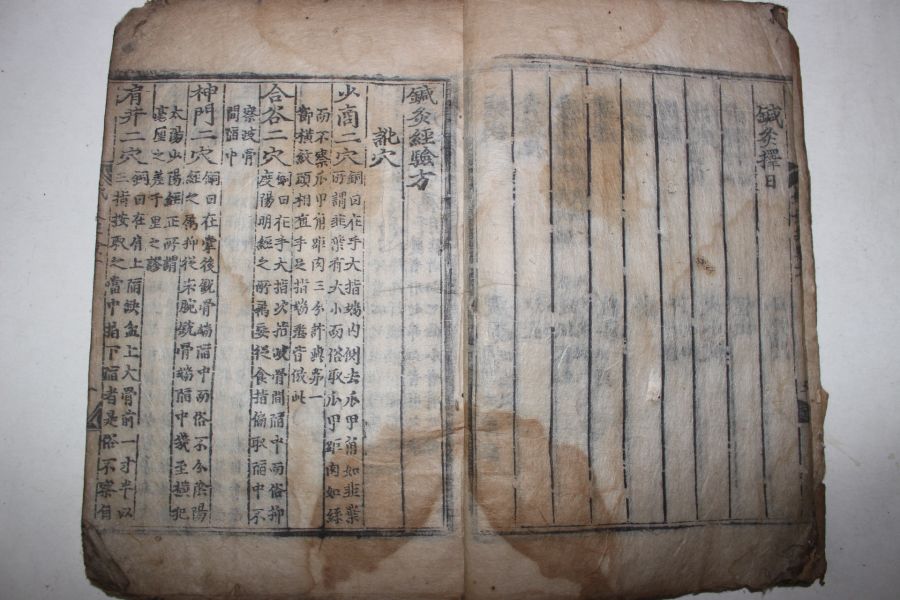 鍼灸擇日
鍼灸經驗方
訛穴
少商二穴 銅曰在手大指端內側去爪甲角如韭葉
所謂韭葉有大小而俗取爪甲距肉如絲
而不察爪甲角距肉三分許與第一
節橫紋頭相直手足指端悉皆倣此
合谷二穴 銅曰在手大指次指歧骨間陷中而俗抑
度陽明經之所爲妄從食指偏取陷中不
察歧骨
間陷中
神門二穴 銅曰在掌後銳骨端陷中而俗不分陰陽
經之屬抑從宋腕銳骨端陷中幾至橫犯
太陽少陽經正所謂
毫厘之差千里之謬
肩井二穴 銅曰在肩上陷缺盆上大骨前一寸半以
三指按取之當中指下陷者是俗不察自